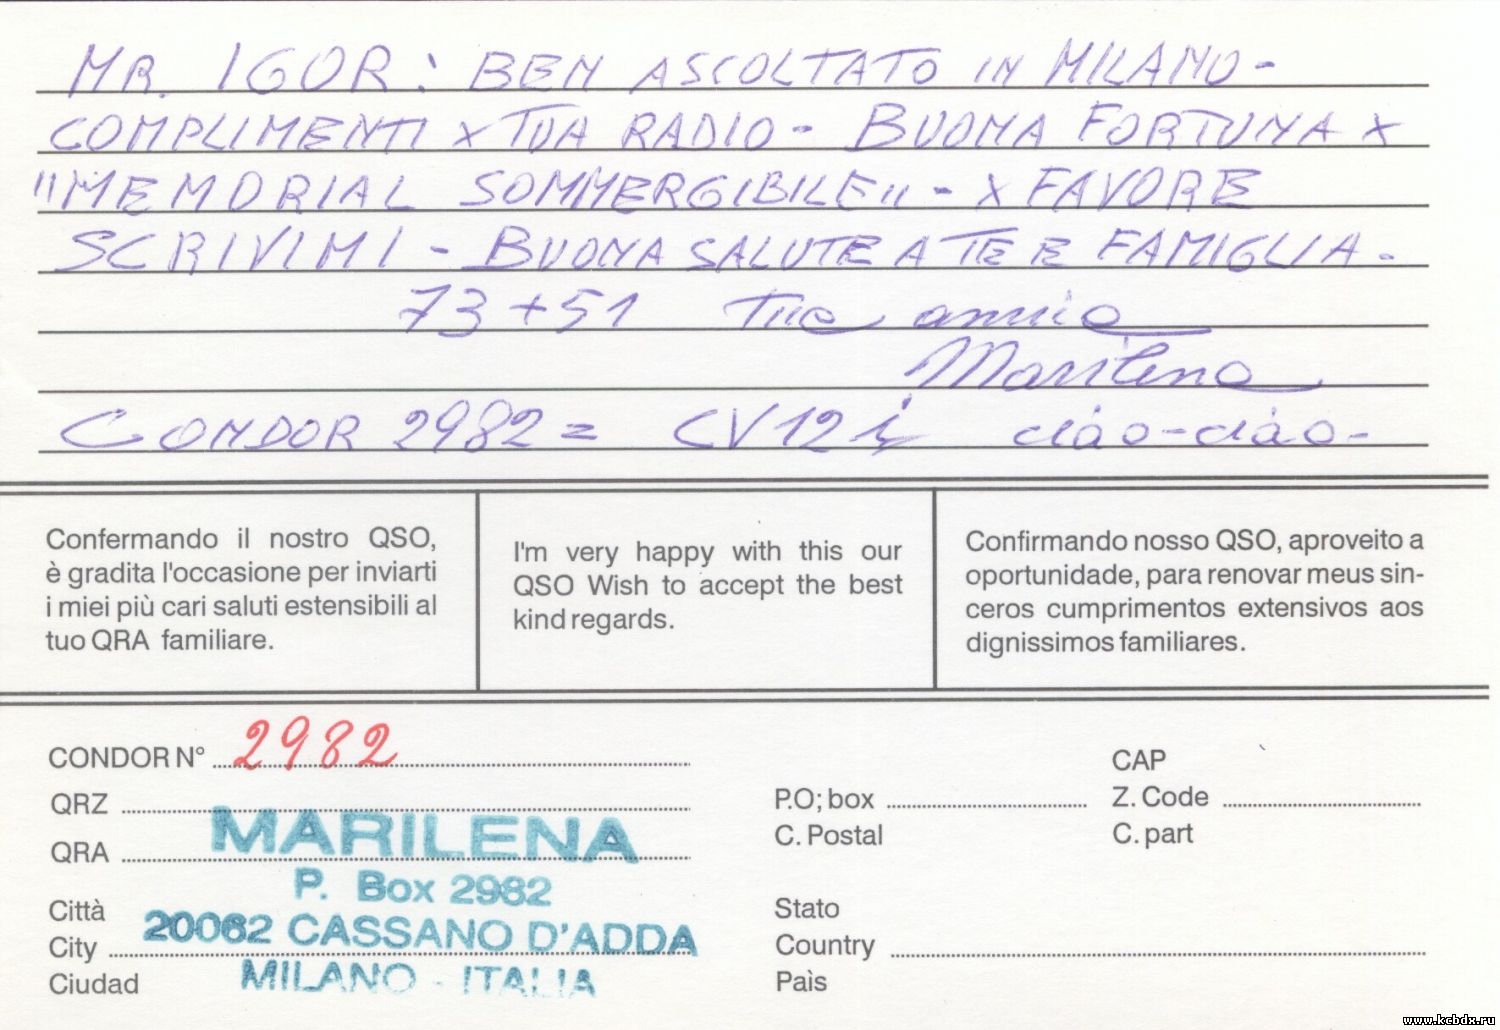 MR. IGOR: BEN ASCOLTATO IN MILANO-
COMPLIMENTI x TUA RADIO- BUONA FORTUNA x
"MEMORIAL SOMMERGIBILE" - x FAVORE
SCRIVIMI - BUONA SALUTE A TE E FAMIGLIA.
73+51 Tua amica
Marilena
CONDOR 2982 = CV12i ciao-ciao-
Confermando il nostro QSO,
è gradita l'occasione per inviarti
i miei più cari saluti estensibili al
tuo QRA familiare.
I'm very happy with this our
QSO Wish to accept the best
kind regards.
Confirmando nosso QSO, aproveito a
oportunidade, para renovar meus sin-
ceros cumprimentos extensivos aos
dignissimos familiares.
CONDOR N° 2982
QRZ
QRA
MARILENA
P. Box 2982
Città
City
Ciudad
20062 CASSANO D'ADDA
MILANO - ITALIA
P.O; box
C. Postal
CAP
Z. Code
C. part
Stato
Country
Paìs
www.kcbdx.ru